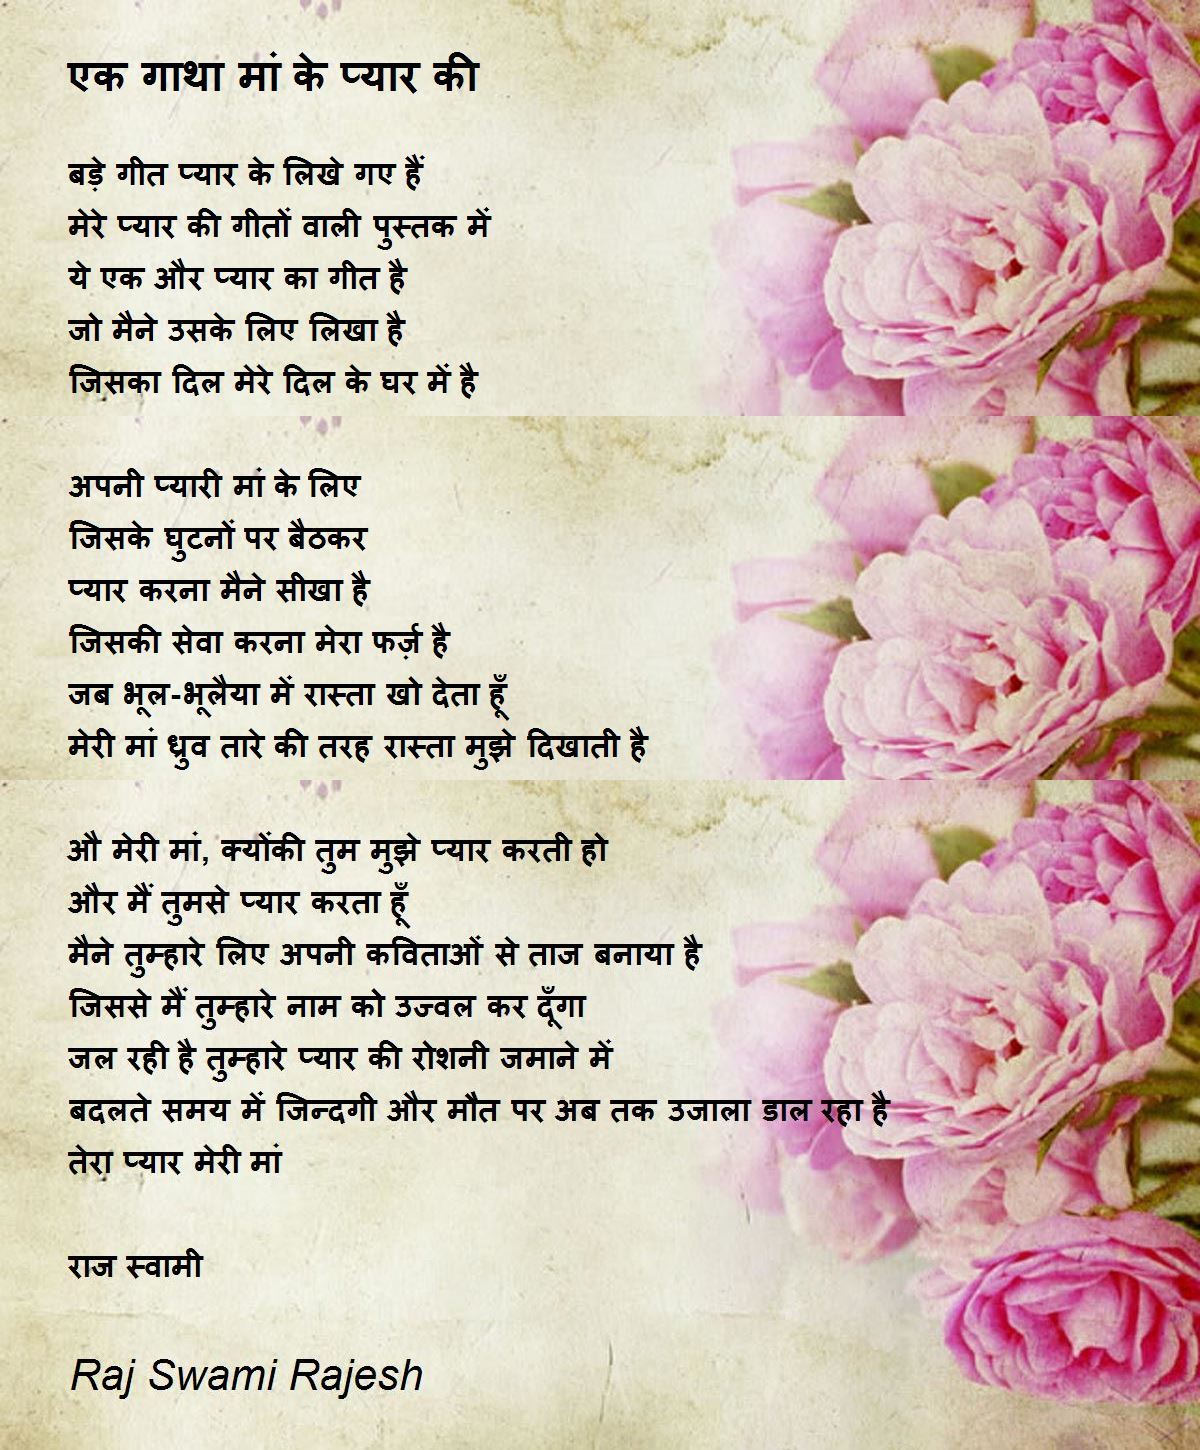 एक गाथा मां के प्यार की
बड़े गीत प्यार के लिखे गए हैं
मेरे प्यार की गीतों वाली पुस्तक में
ये एक और प्यार का गीत है
जो मैने उसके लिए लिखा है
जिसका दिल मेरे दिल के घर में है
अपनी प्यारी मां के लिए
जिसके घुटनों पर बैठकर
प्यार करना मैने सीखा है
जिसकी सेवा करना मेरा फर्ज़ है
जब भूल-भूलैया में रास्ता खो देता हूँ
मेरी मां ध्रुव तारे की तरह रास्ता मुझे दिखाती है
औ मेरी मां, क्योंकी तुम मुझे प्यार करती हो
और मैं तुमसे प्यार करता हूँ
मैने तुम्हारे लिए अपनी कविताओं से ताज बनाया है
जिससे मैं तुम्हारे नाम को उज्वल कर दूँगा
जल रही है तुम्हारे प्यार की रोशनी जमाने में
बदलते समय में जिन्दगी और मौत पर अब तक उजाला डाल रहा है
तेरा प्यार मेरी मां
राज स्वामी
Raj Swami Rajesh